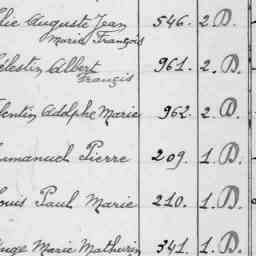 lie Auguste Jean 546. 2. D.
Marie François
élestin Albert 961. 2. D.
Francis
lentin Adolphe Marie 962. 2. D.
mmanuel Pierre 209. 1. D.
ouis Paul Marie 210. 1. D.
ange Marie Mathurin 341. 1. D.